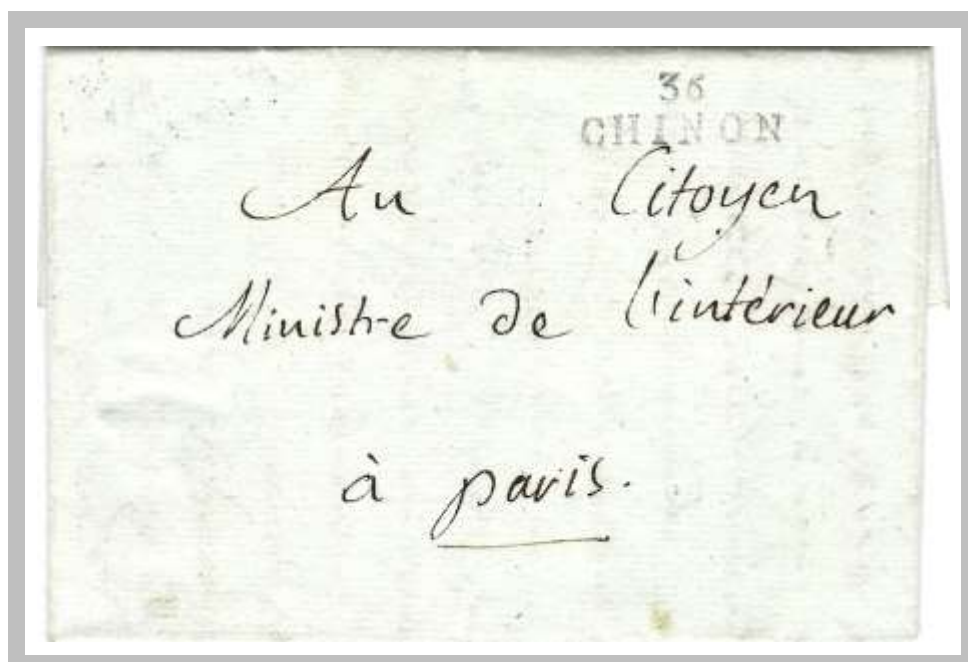 36
CHINON
Au Citoyen
Ministre de l'intérieur
à paris.